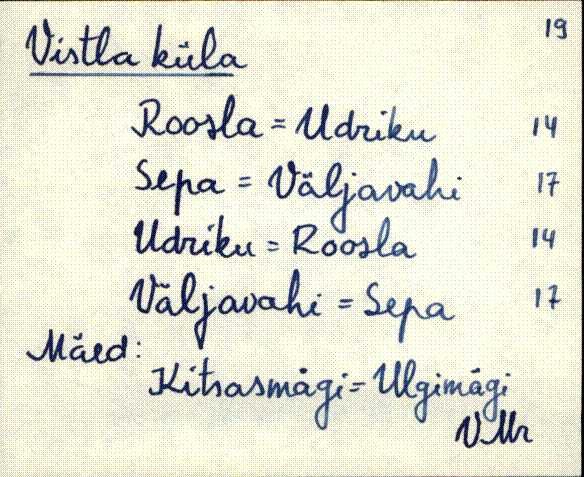 19
Vistla küla
Roosla = Udriku 14
Sepa = Väljavahi 17
Udriku = Roosla 14
Väljavahi = Sepa 17
Mäed:
Kitsasmägi = Ulgimägi
V. Mr